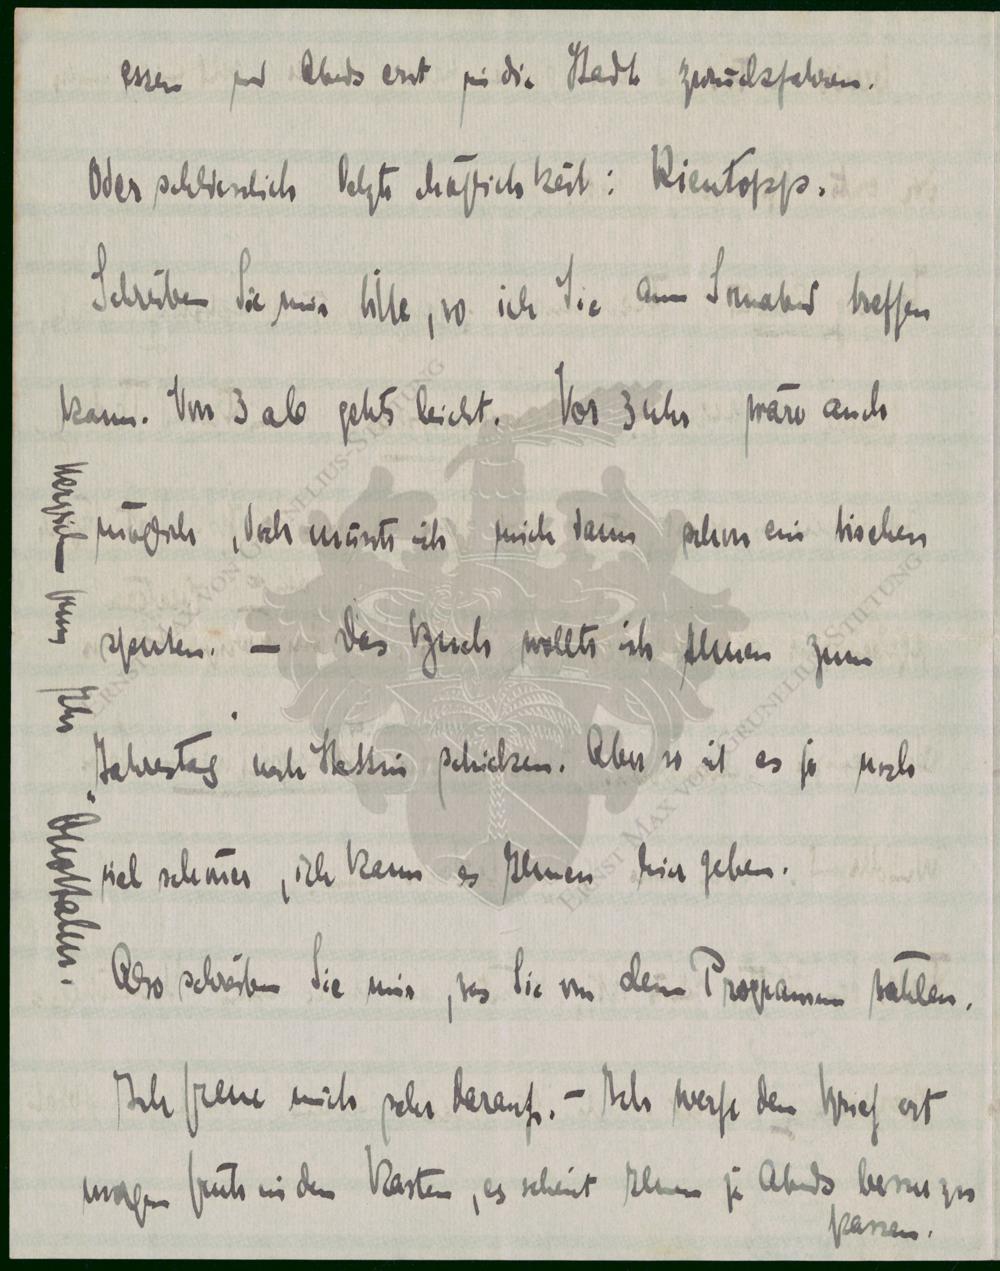 essen und Abends erst in die Stadt zurückfahren.
Oder schliesslich letzte Möglichkeit: Kientopp.
Schreiben Sie mir bitte, wo ich Sie am Sonnabend treffen
kann. Von 3 ab gehts leicht. Vor 3 Uhr wäre auch
möglich, doch müsste ich mich dann schon ein bischen
sputen. — Das Buch wollte ich Ihnen zum
Jahrestag nach Stettin schicken. Aber so ist es ja noch
viel schöner, ich kann es Ihnen hier geben.
Also schreiben Sie mir, was Sie von dem Programm wählen.
Ich freue mich sehr darauf. — Ich werfe den Brief erst
morgen früh in den Kasten, es scheint Ihnen ja Abends besser zu
passen.
Herzlich Ihr
ERNST MAX VON GRUNELIUS-STIFTUNG
ERNST MAX VON GRUNELIUS-STIFTUNG